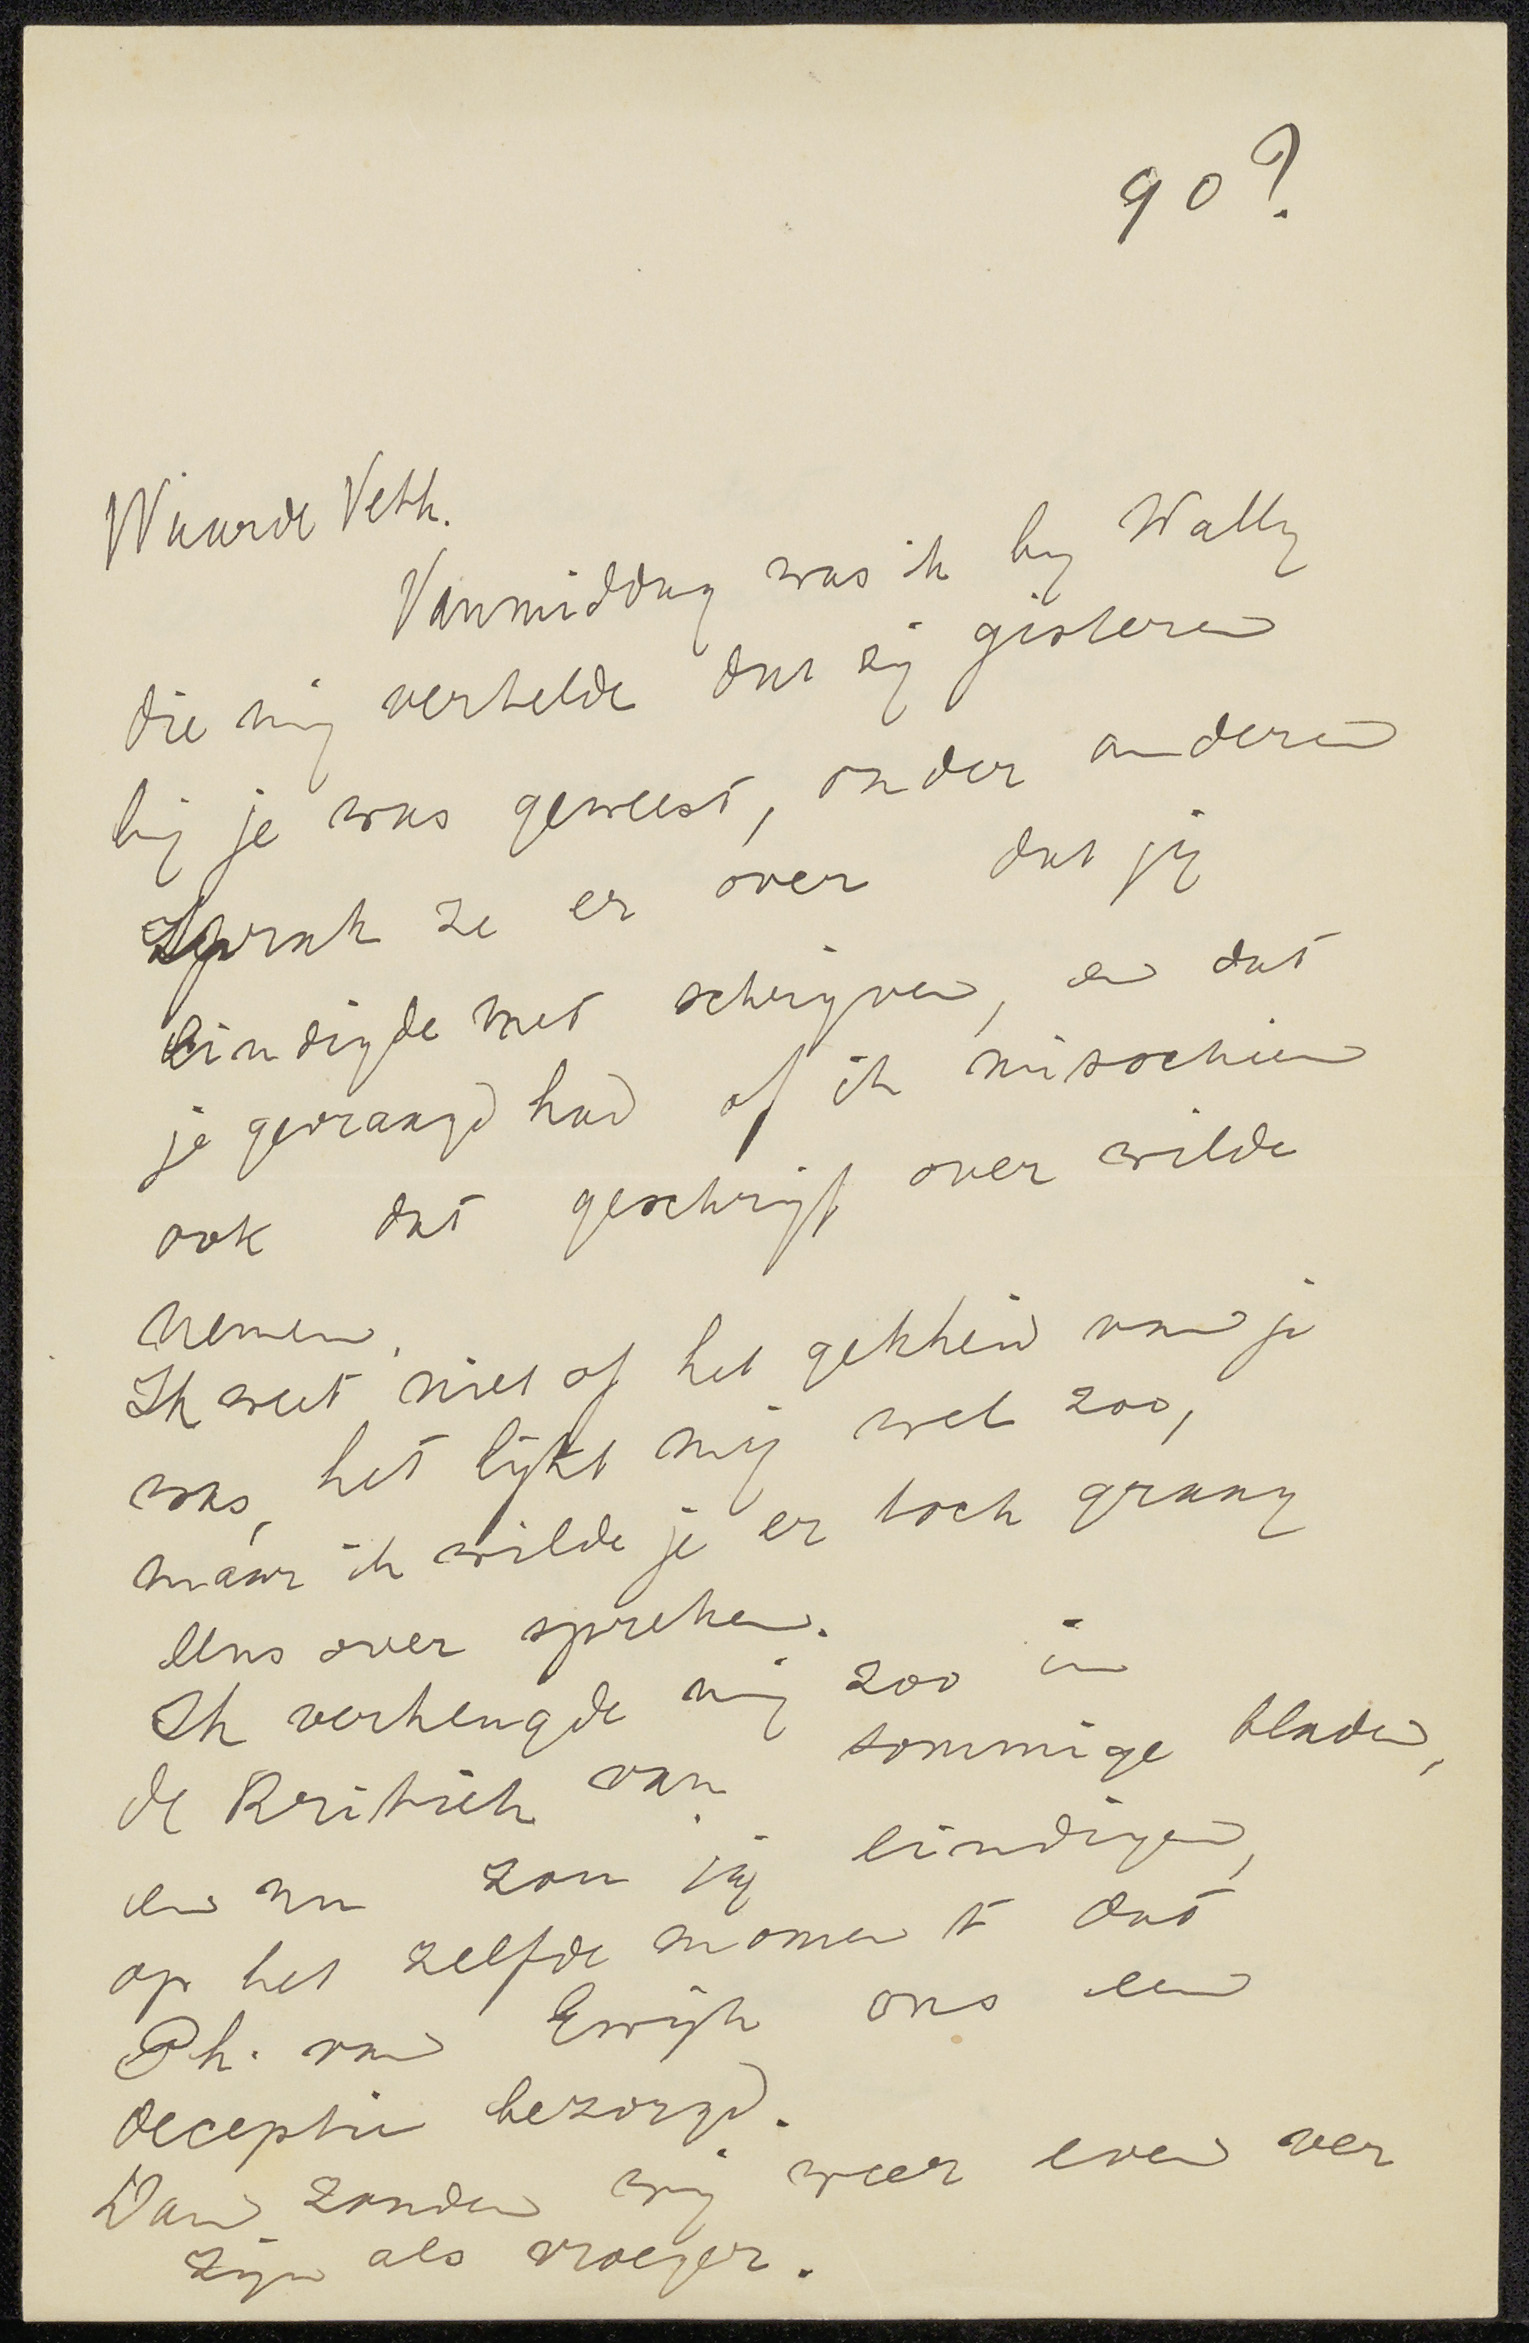 90?
Waarde Veth.
Vanmiddag was ik by Wally
die mij vertelde dat zij gisteren
bij je was geweest, onder anderen
sprak ze er over dat jij
eindigde met schrijven, en dat
je gevraagd had of ik misschien
ook dat geschrijf over wilde
nemen.
Ik weet niet of het gekheid van je
was, het lijkt mij wel zoo,
maar ik wilde je er toch graag
eens over spreken.
Ik verheugde mij zoo in
de Kritiek van sommige bladen,
en nu zou jij eindigen,
op het zelfde moment dat
Ph. van Ewijk ons een
deceptie bezorgd.
Dan zouden wij weer even ver
zijn als vroeger.